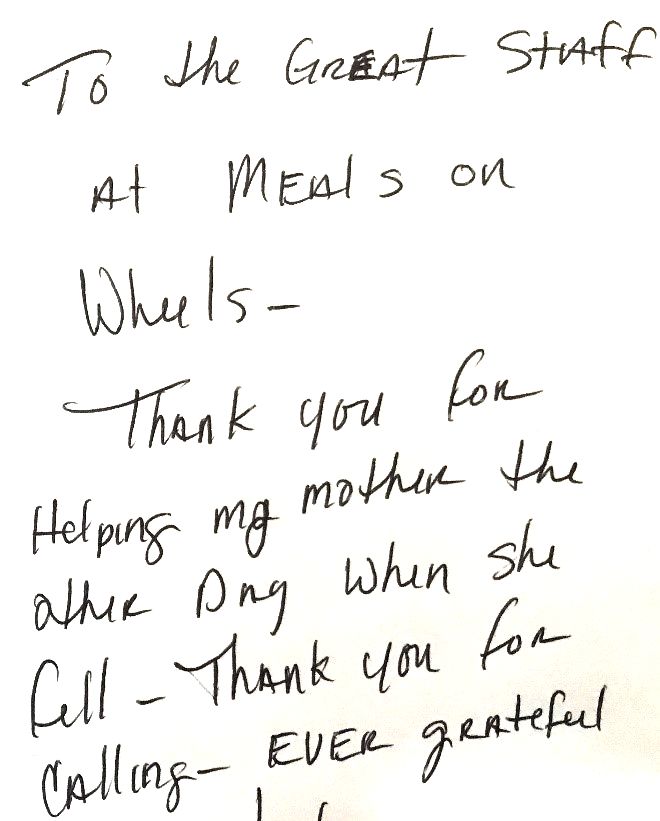 To the GREAt Staff
At MEAls on
Wheels-
Thank you for
Helping my mother the
other Day when she
fell - Thank you for
calling - EVER grateful